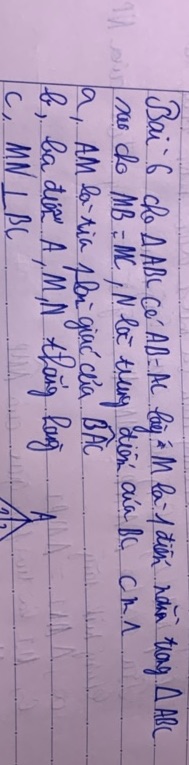 Bài 6 cho ΔABC có AB=AC lấy M là 1 điểm nằm trong ΔABC
sao cho MB = MC, N là trung điểm của BC c m r
a, AM là tia phân giác của BAC
b, ba điểm A, M, N thẳng hàng
c, MN ⊥ BC
A
1 2